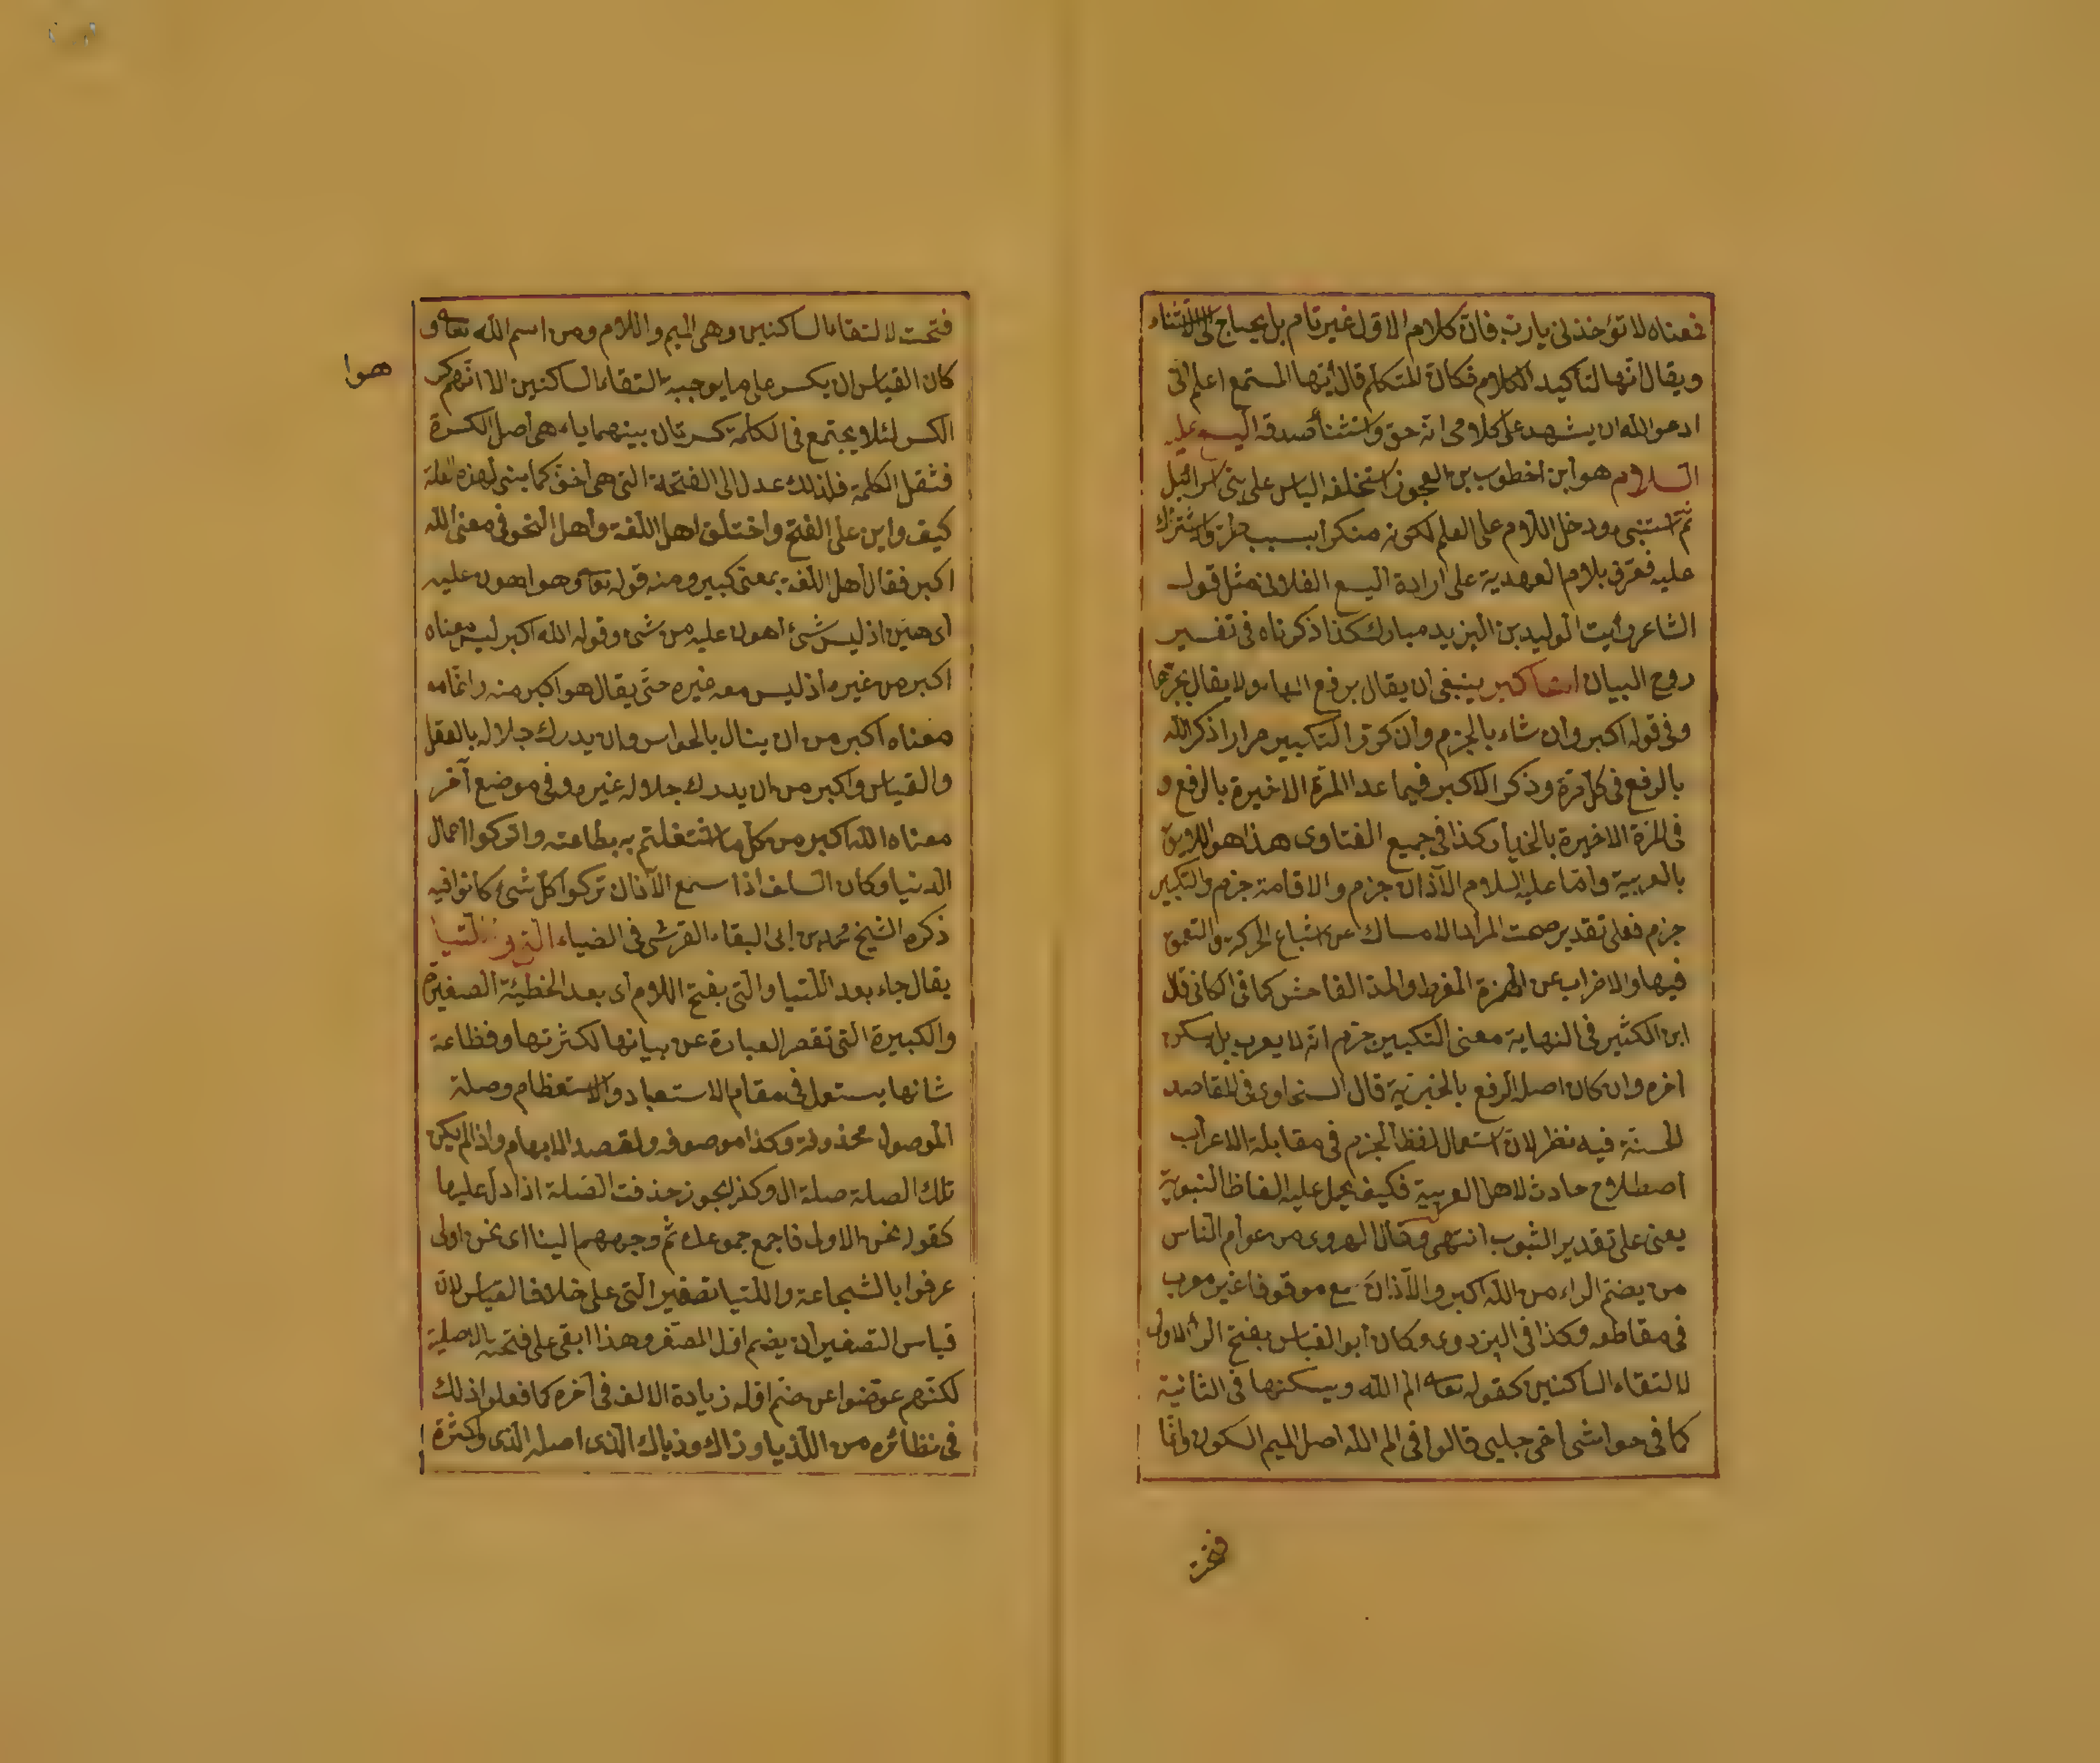 فمعناه لا تؤخذنى يا رب فان كلام الاول غير تام بل يحتاج الى الاستثناء
ويقال انها لتأكيد الكلام فكان المتكلم قال أيها المستمع اعلم انى
ادعو الله ان يشهد على كلامى انه حق واستثنأ صدقه اليسع عليه
السلام هو ابن اخطوب بن العجوز استخلفه الياس على بنى اسرائيل
ثم استنبى ودخل اللام على العلم لكونه منكرا بسبب واشتراك
عليه فعرف بلام العهدية على ارادة اليسع الفلانى مثل قول
الشاعر رأيت الوليد بن اليزيد مباركا كذا ذكرناه فى تفسير
روح البيان الله اكبر ينبغى ان يقال برفع الهاء ولا يقال بجزمها
وفى قوله اكبر وان شاء بالجزم وان كرر التكبير مرارا ذكر الله
بالرفع فى كل مرة وذكر الاكبر فيما عدا المرة الاخيرة بالرفع و
فى المرة الاخيرة بالخيار كذا فى جميع الفتاوى هذا هو اللايق
بالعربية واما عليه السلام الآذان جزم والاقامة جزم والتكبير
جزم فعلى تقدير صحت المراد الامساك عن اشباع الحركة والتعمق
فيها والاضراب عن الهمزة المفرط والمد الفاحش كما فى الكافى قال
ابن الكثير فى النهاية معنى التكبير جزم انه لا يعرب بل يسكن
اخره وان كان اصله الرفع بالخبرية قال السخاوى فى المقاصد
الحسنة فيه نظر لان استعمال لفظ الجزم فى مقابلة الاعراب
اصطلاح حادث لاهل العربية فكيف يحمل عليه الفاظ النبوية
يعنى على تقدير الثبوب انتهى وقال الهروى من عوام الناس
من يضم الراء من الله اكبر والآذان سمع موقوفا غير معرب
فى مقاطعه وكذا فى البزدوى وكان ابو العباس يفتح الراء الاولى
لالتقاء الساكنين كقوله تعالى الم الله ويسكنها فى الثانية
كما فى حواشى اخى جلبى قالوا فى الم الله اصل الميم السكون وانما
فتحت
فتحت لالتقاء الساكنين وهى الميم واللام ومن اسم الله تعالى و
كان القياس ان يكسر على ما يوجبه التقاء الساكنين الا انهم كر
هوا
الكسر لئلا يجتمع فى الكلمة كسرتان بينهما ياء هى أصل الكسرة
فثقل الكلمة فلذلك عدل الى الفتحة التى هى اخف كما بنى لهذه العلة
كيف واين على الفتح واختلف اهل اللغة وأهل النحو فى معنى الله
اكبر فقال أهل اللغة بمعنى كبير ومنه قوله تعالى وهو اهون عليه
أى هين اذ ليس شئ أهون عليه من شئ وقوله الله اكبر ليس معناه
اكبر من غيره اذ ليس معه غيره حتى يقال هو اكبر منه وانما
معناه اكبر من ان ينال بالحواس وان يدرك جلاله بالعقل
والقياس واكبر من ان يدرك جلاله غيره وفى موضع آخر
معناه الله اكبر من كل ما اشتغلتم به بطاعته واتركوا اعمال
الدنيا وكان السلف اذا سمع الآذان تركوا كل شئ كانوا فيه
ذكره الشيخ محمد بن ابى البقاء القرشى فى الضياء التى واللتيا
يقال جاء بعد اللتيا والتى بفتح اللام أى بعد الخطيئة الصغيرة
والكبيرة التى تقصر العبارة عن بيانها لكثرتها وفظاعة
شانها يستعمل فى مقام الاستعباد والاستعظام وصلة
الموصول محذوفة وكذا موصوفه ولقصد الابهام واذا لم يكن
تلك الصلة صلة ال وكذا يجوز حذفت الصلة اذا دل عليها
كقوله نحن الاولى فاجمع جموعك ثم وجههم الينا اى نحن اولى
عرفوا بالشجاعة واللتيا تصغير التى على خلاف القياس لان
قياس التصغير ان يضم اول المصغر وهذا ابقى على فتحته الاصلية
لكنهم عوضوا عن ضم اوله زيادة الالف فى آخره كما فعلوا ذلك
فى نظائره من اللذيا وذاك وذياك الذى اصله الذى واكثرة